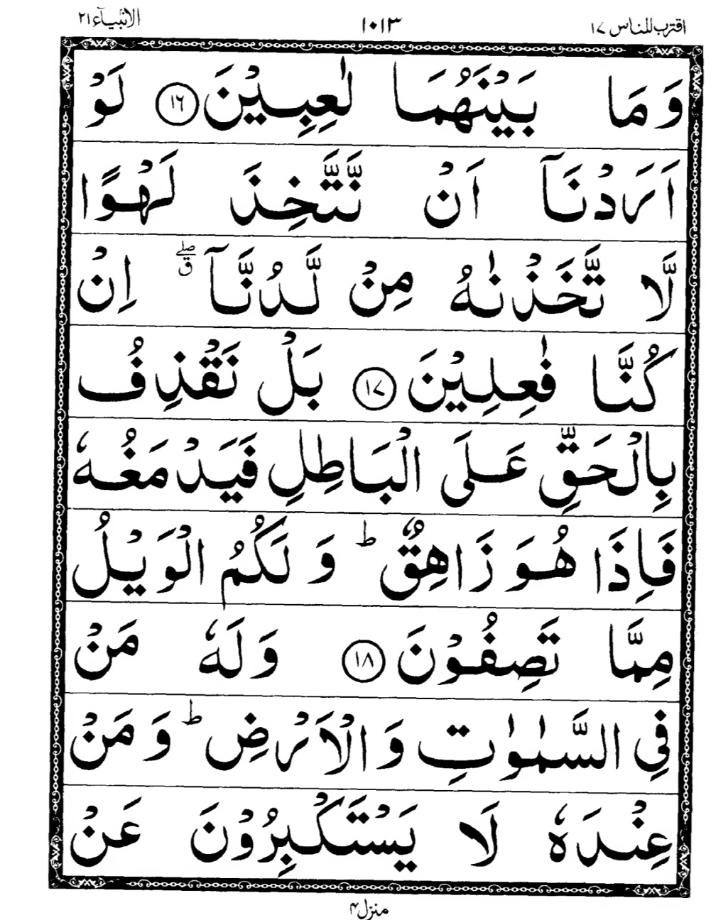 اقترب للناس ١٧ ١٠١٣ الانبیآء ٢١
وَمَا بَیْنَهُمَا لٰعِبِیْنَ ﴿١٦﴾ لَوْ
اَرَدْنَاۤ اَنْ نَّتَّخِذَ لَهْوًا
لَّا تَّخَذْنٰهُ مِنْ لَّدُنَّاۤ ۖق اِنْ
كُنَّا فٰعِلِیْنَ ﴿١٧﴾ بَلْ نَقْذِفُ
بِالْحَقِّ عَلَی الْبَاطِلِ فَیَدْمَغُهٗ
فَاِذَا هُوَ زَاهِقٌ ؕ وَ لَكُمُ الْوَیْلُ
مِمَّا تَصِفُوْنَ ﴿١٨﴾ وَلَهٗ مَنْ
فِی السَّمٰوٰتِ وَالْاَرْضِ ؕ وَمَنْ
عِنْدَهٗ لَا یَسْتَكْبِرُوْنَ عَنْ
منزل ۴